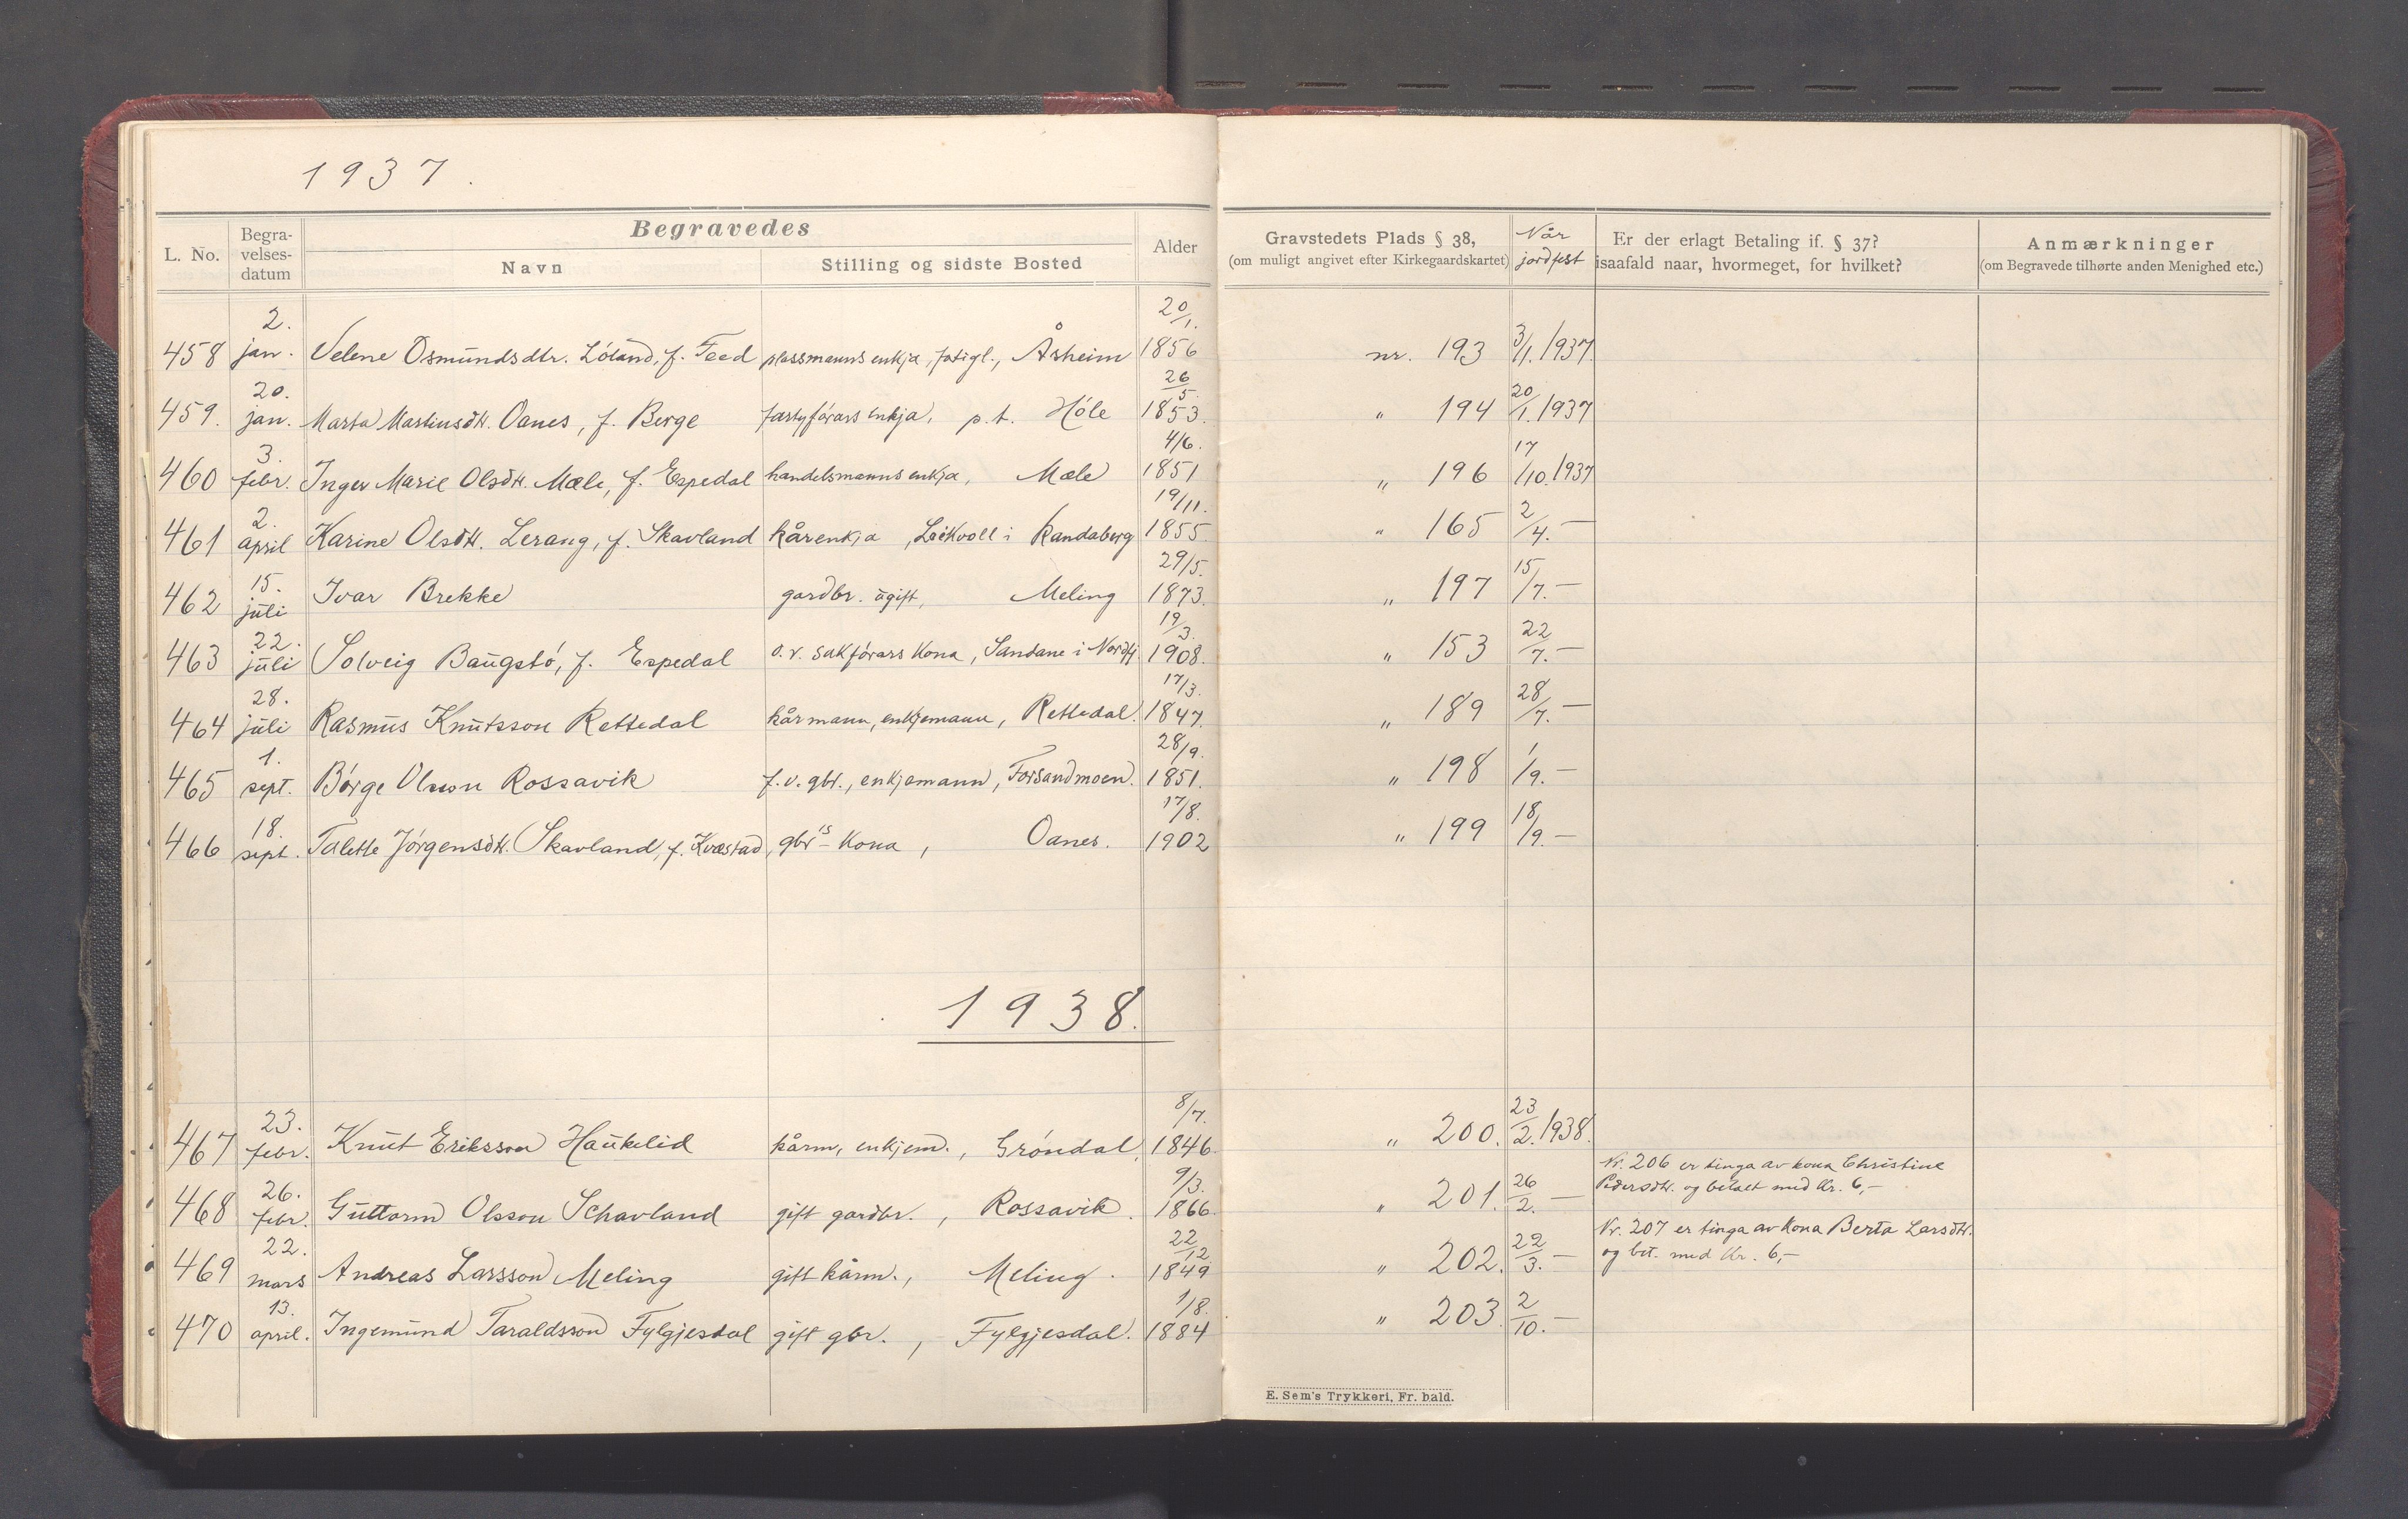 1937.
Begravedes
L. No. Begra-velses-datum Navn Stilling og sidste Bosted Alder Gravstedets Plads § 38, (om muligt angivet efter Kirkegaardskartet) Når jordfest Er der erlagt Betaling if. § 37? isaafald naar, hvormeget, for hvilket? Anmærkninger (om Begravede tilhørte anden Menighed etc.)
458 2. jan. Velene Osmundsdtr. Löland, f. Teed plassmanns enkja, fatigl., Åsheim 20/1. 1856 nr. 193 3/1. 1937.
459. 20. jan. Marta Martinsdtr. Oanes, f. Berge fartyförars enkja, p.t. Höle 26/5. 1853. " 194 20/1. 1937
460 3. febr. Inger Marie Olsdtr. Mæle, f. Espedal handelsmanns enkja, Mæle 4/6. 1851 " 196 17/10. 1937
461 2. april Karine Olsdtr. Lerang, f. Skavland kårenkja, i Randaberg 19/11. 1855. " 165 2/4. —
462 15. juli Ivar Brekke gardbr. ugift, Meling 29/5. 1873. " 197 15/7. —
463 22. juli Solveig Baugstö, f. Espedal o.r. sakförars kona, Sandane i Nordfj. 19/3. 1908. " 153 22/7. —
464 28. juli Rasmus Knutsson Rettedal kårmann, enkjemann, Rettedal. 17/3. 1847. " 189 28/7. —
465 1. sept. Börge Olsson Rossavik f.v. gbr., enkjemann, Forsandmoen. 28/9. 1851. " 198 1/9. —
466 18. sept. Talette Jörgensdtr. Skavland, f. Kvæstad, gbr's kona, Oanes. 17/8. 1902 " 199 18/9. —
1938.
467 23. febr. Knut Eriksson Haukelid kårm, enkjem., Gröndal, 8/7. 1846. " 200. 23/2. 1938.
468 26. febr. Guttorm Olsson Schavland gift gardbr., Rossavik. 9/3. 1866. " 201. 26/2. — Nr. 206 er tinga av kona Christine
Pedersdtr. og betalt med kr. 6,-
469 22. mars Andreas Larsson Meling gift kårm., Meling. 22/12 1849 " 202. 22/3. — Nr. 207 er tinga av kona Berta Larsdtr.
og bet. med kr. 6,-
470 13. april. Ingemund Taraldsson Fylgjesdal gift gbr., Fylgjesdal. 1/8. 1884 " 203. 2/10. —
E. Sem's Trykkeri, Fr. hald.